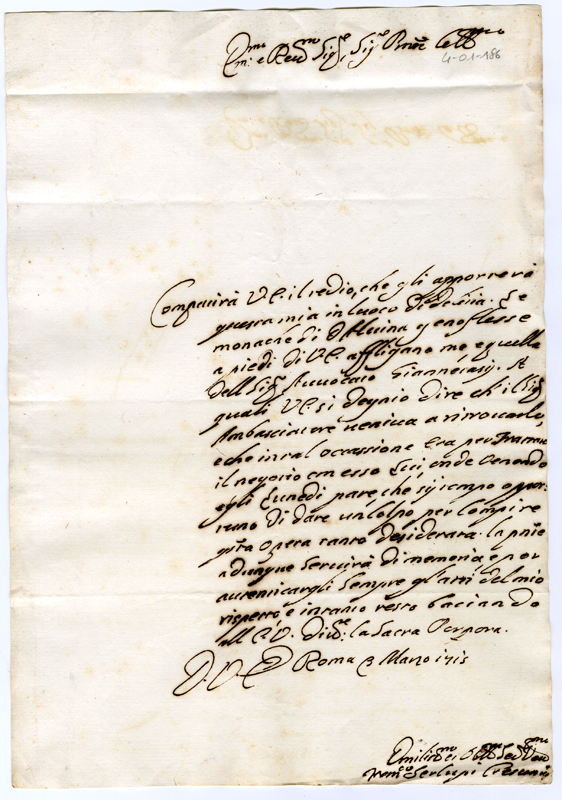 Em.mo e Rev.mo Sig.re, Sig.re Pron Coll.mo
4-01-186
Compatirà V.E. il tedio, che gli apporterà
questa mia in luoco di
monache di genoflesse
a piedi di V.E. affligano me, e quelle
dell Sig.r Avvocato A
quali V.E. si degnò dire ch'il Sig.r
Ambasciatore veniva a ritrovarlo,
e che in tal occassione era per trattare
il negozio con esso Lui, onde venendo
egli Lunedì pare, che sij tempo oppor-
tuno di dare un colpo per compire
q.sta opera tanto desiderata. la pn̄te
adunque servirà di memoria, e per
autenticargli sempre gl'atti del mio
rispetto, e intanto resto baciando
all E.V. la Sacra Porpora.
D.V.E. Roma 3 Marzo 1715
Serlupi Crescenzi